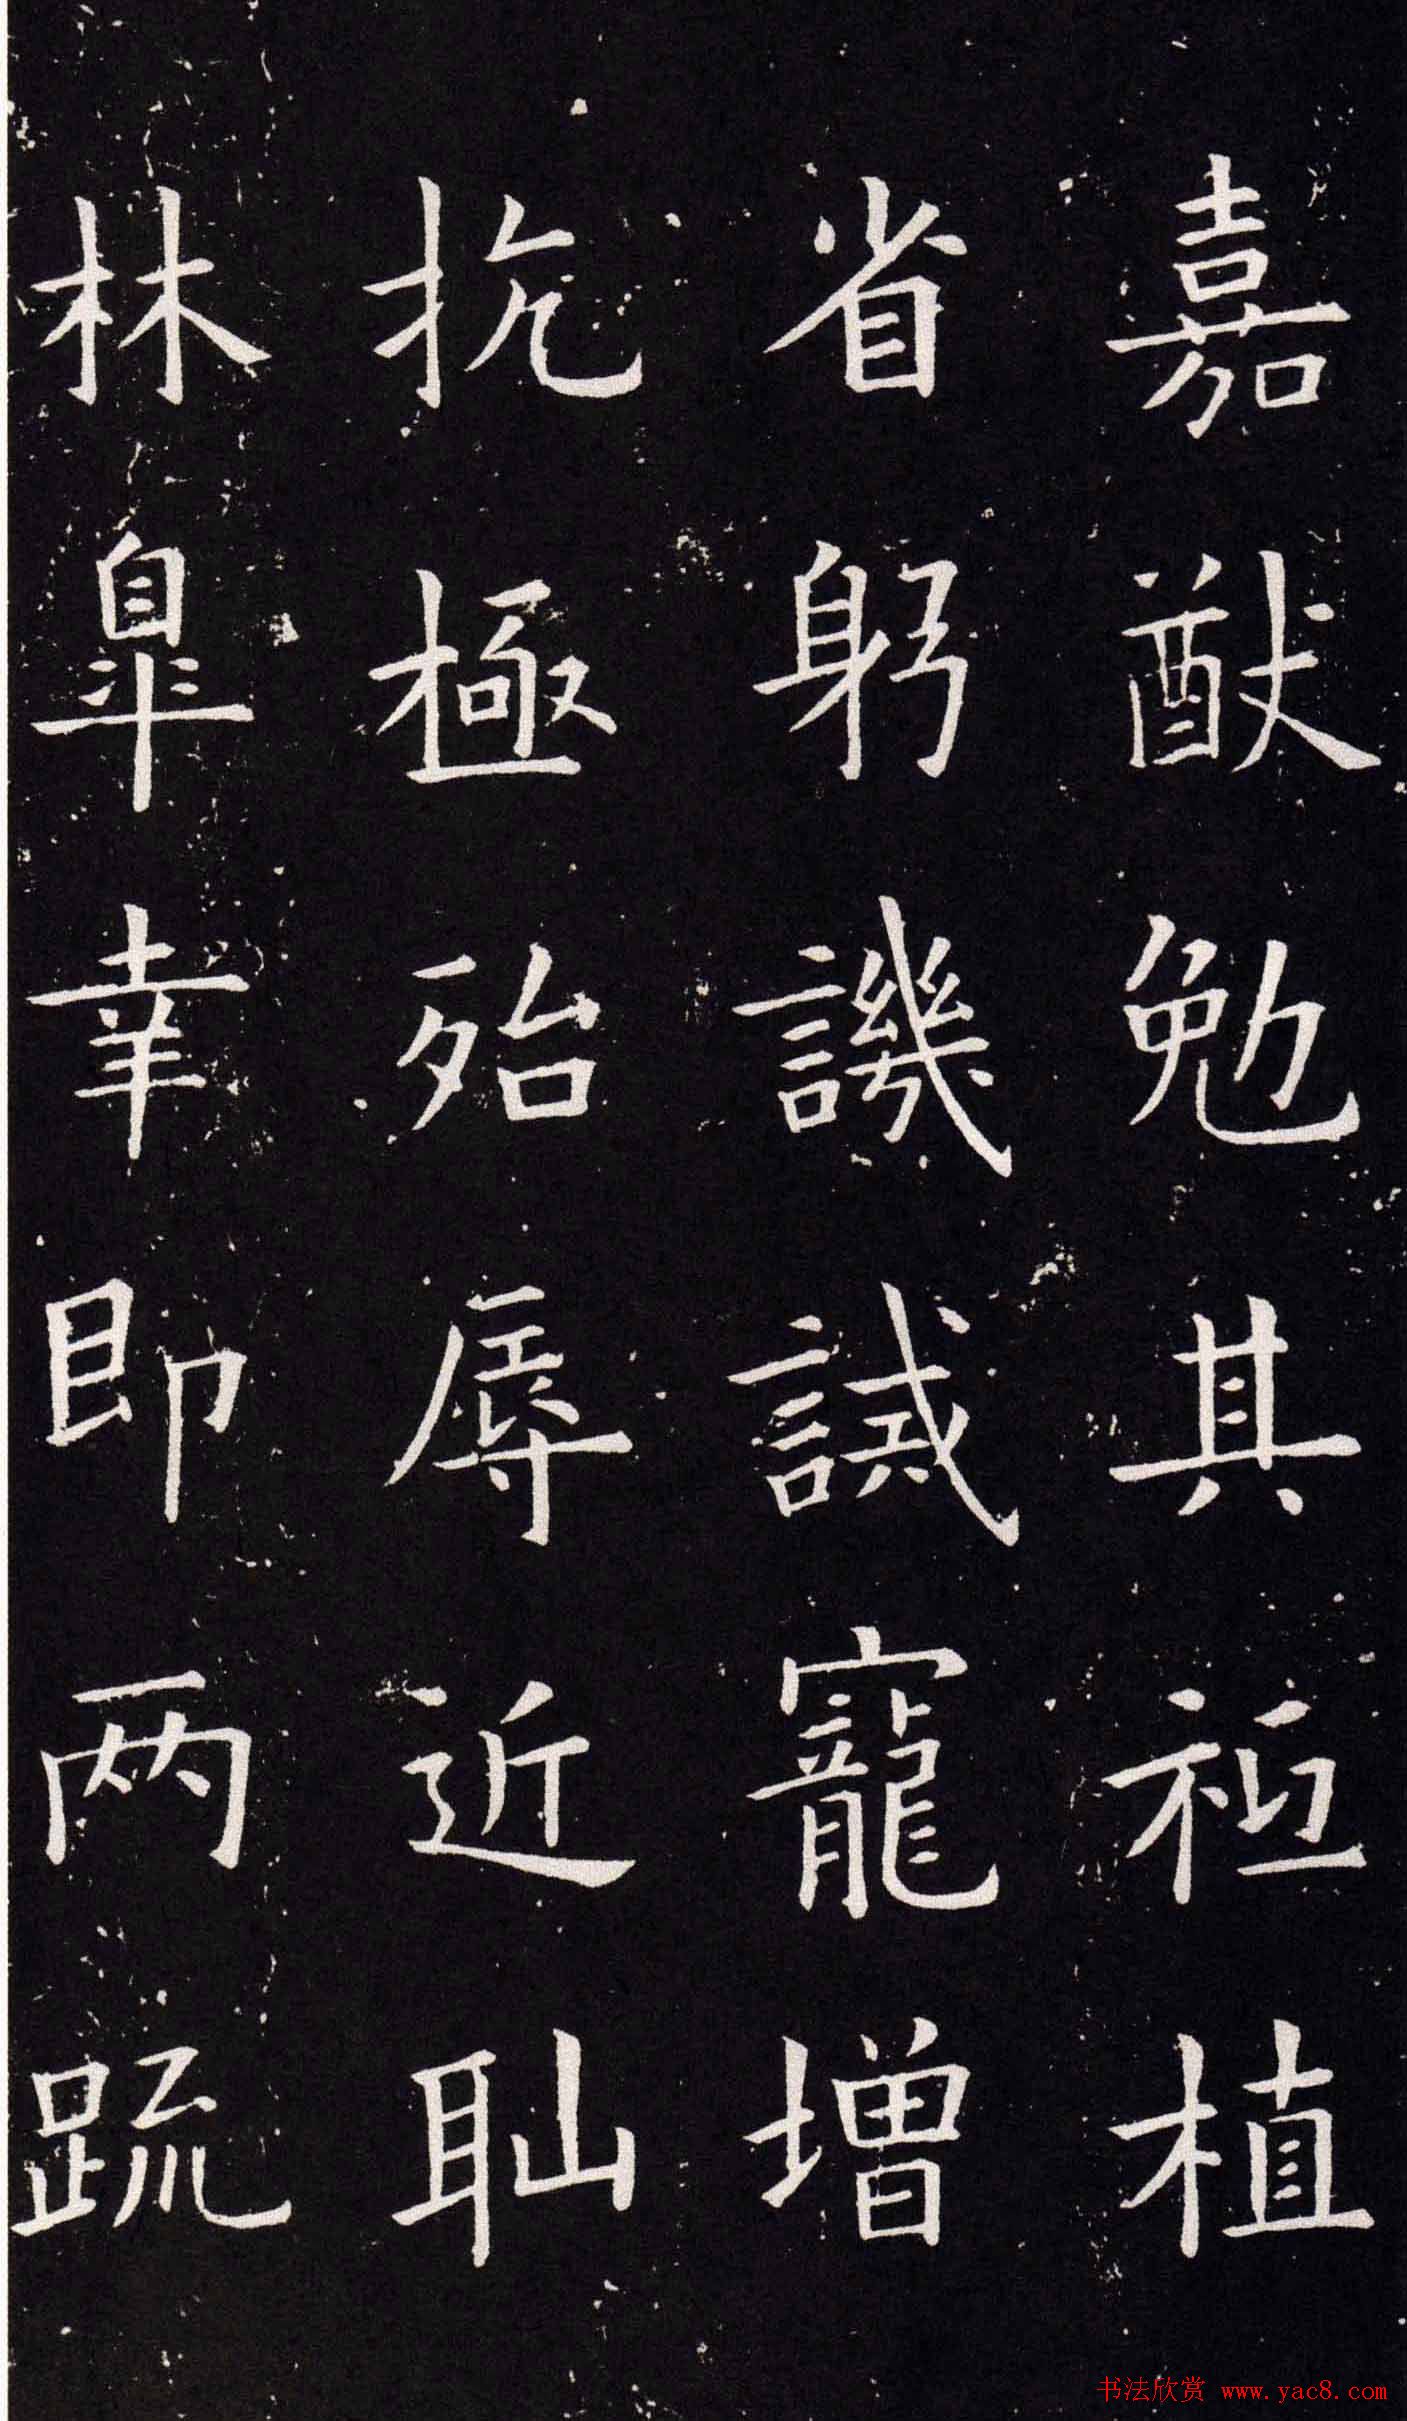 嘉猷勉其祗植
省躬譏誡寵增
抗極殆辱近耻
林皐幸即兩疏
书法欣赏 www.yac8.com